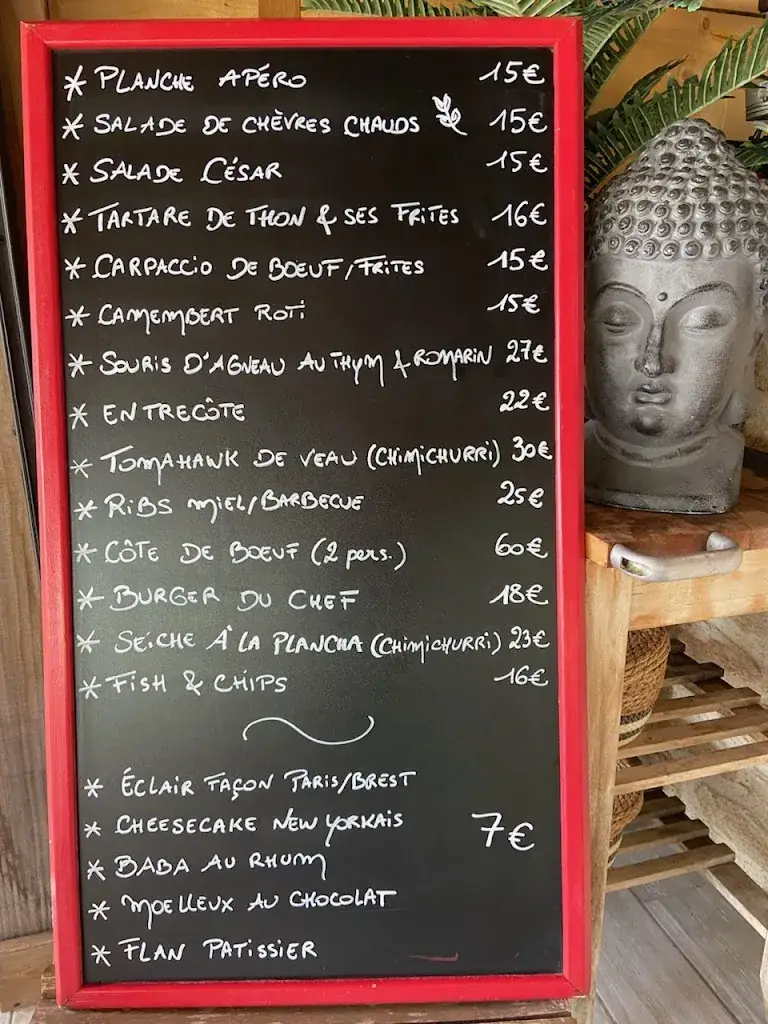 * PLANCHE APÉRO 15€
* SALADE DE CHÈVRES CHAUDS 15€
* SALADE CÉSAR 15€
* TARTARE DE THON & SES FRITES 16€
* CARPACCIO DE BOEUF/FRITES 15€
* CAMEMBERT ROTI 15€
* SOURIS D'AGNEAU AU THYM & ROMARIN 27€
* ENTRECÔTE 22€
* TOMAHAWK DE VEAU (CHIMICHURRI) 30€
* RIBS MIEL/BARBECUE 25€
* CÔTE DE BOEUF (2 pers.) 60€
* BURGER DU CHEF 18€
* SEICHE À LA PLANCHA (CHIMICHURRI) 23€
* FISH & CHIPS 16€
* ÉCLAIR FAÇON PARIS/BREST
* CHEESECAKE NEW YORKAIS 7€
* BABA AU RHUM
* MOELLEUX AU CHOCOLAT
* FLAN PATISSIER